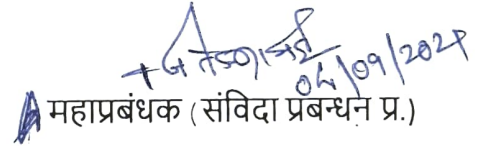 04/09/2024
महाप्रबंधक (संविदा प्रबन्धन प्र.)